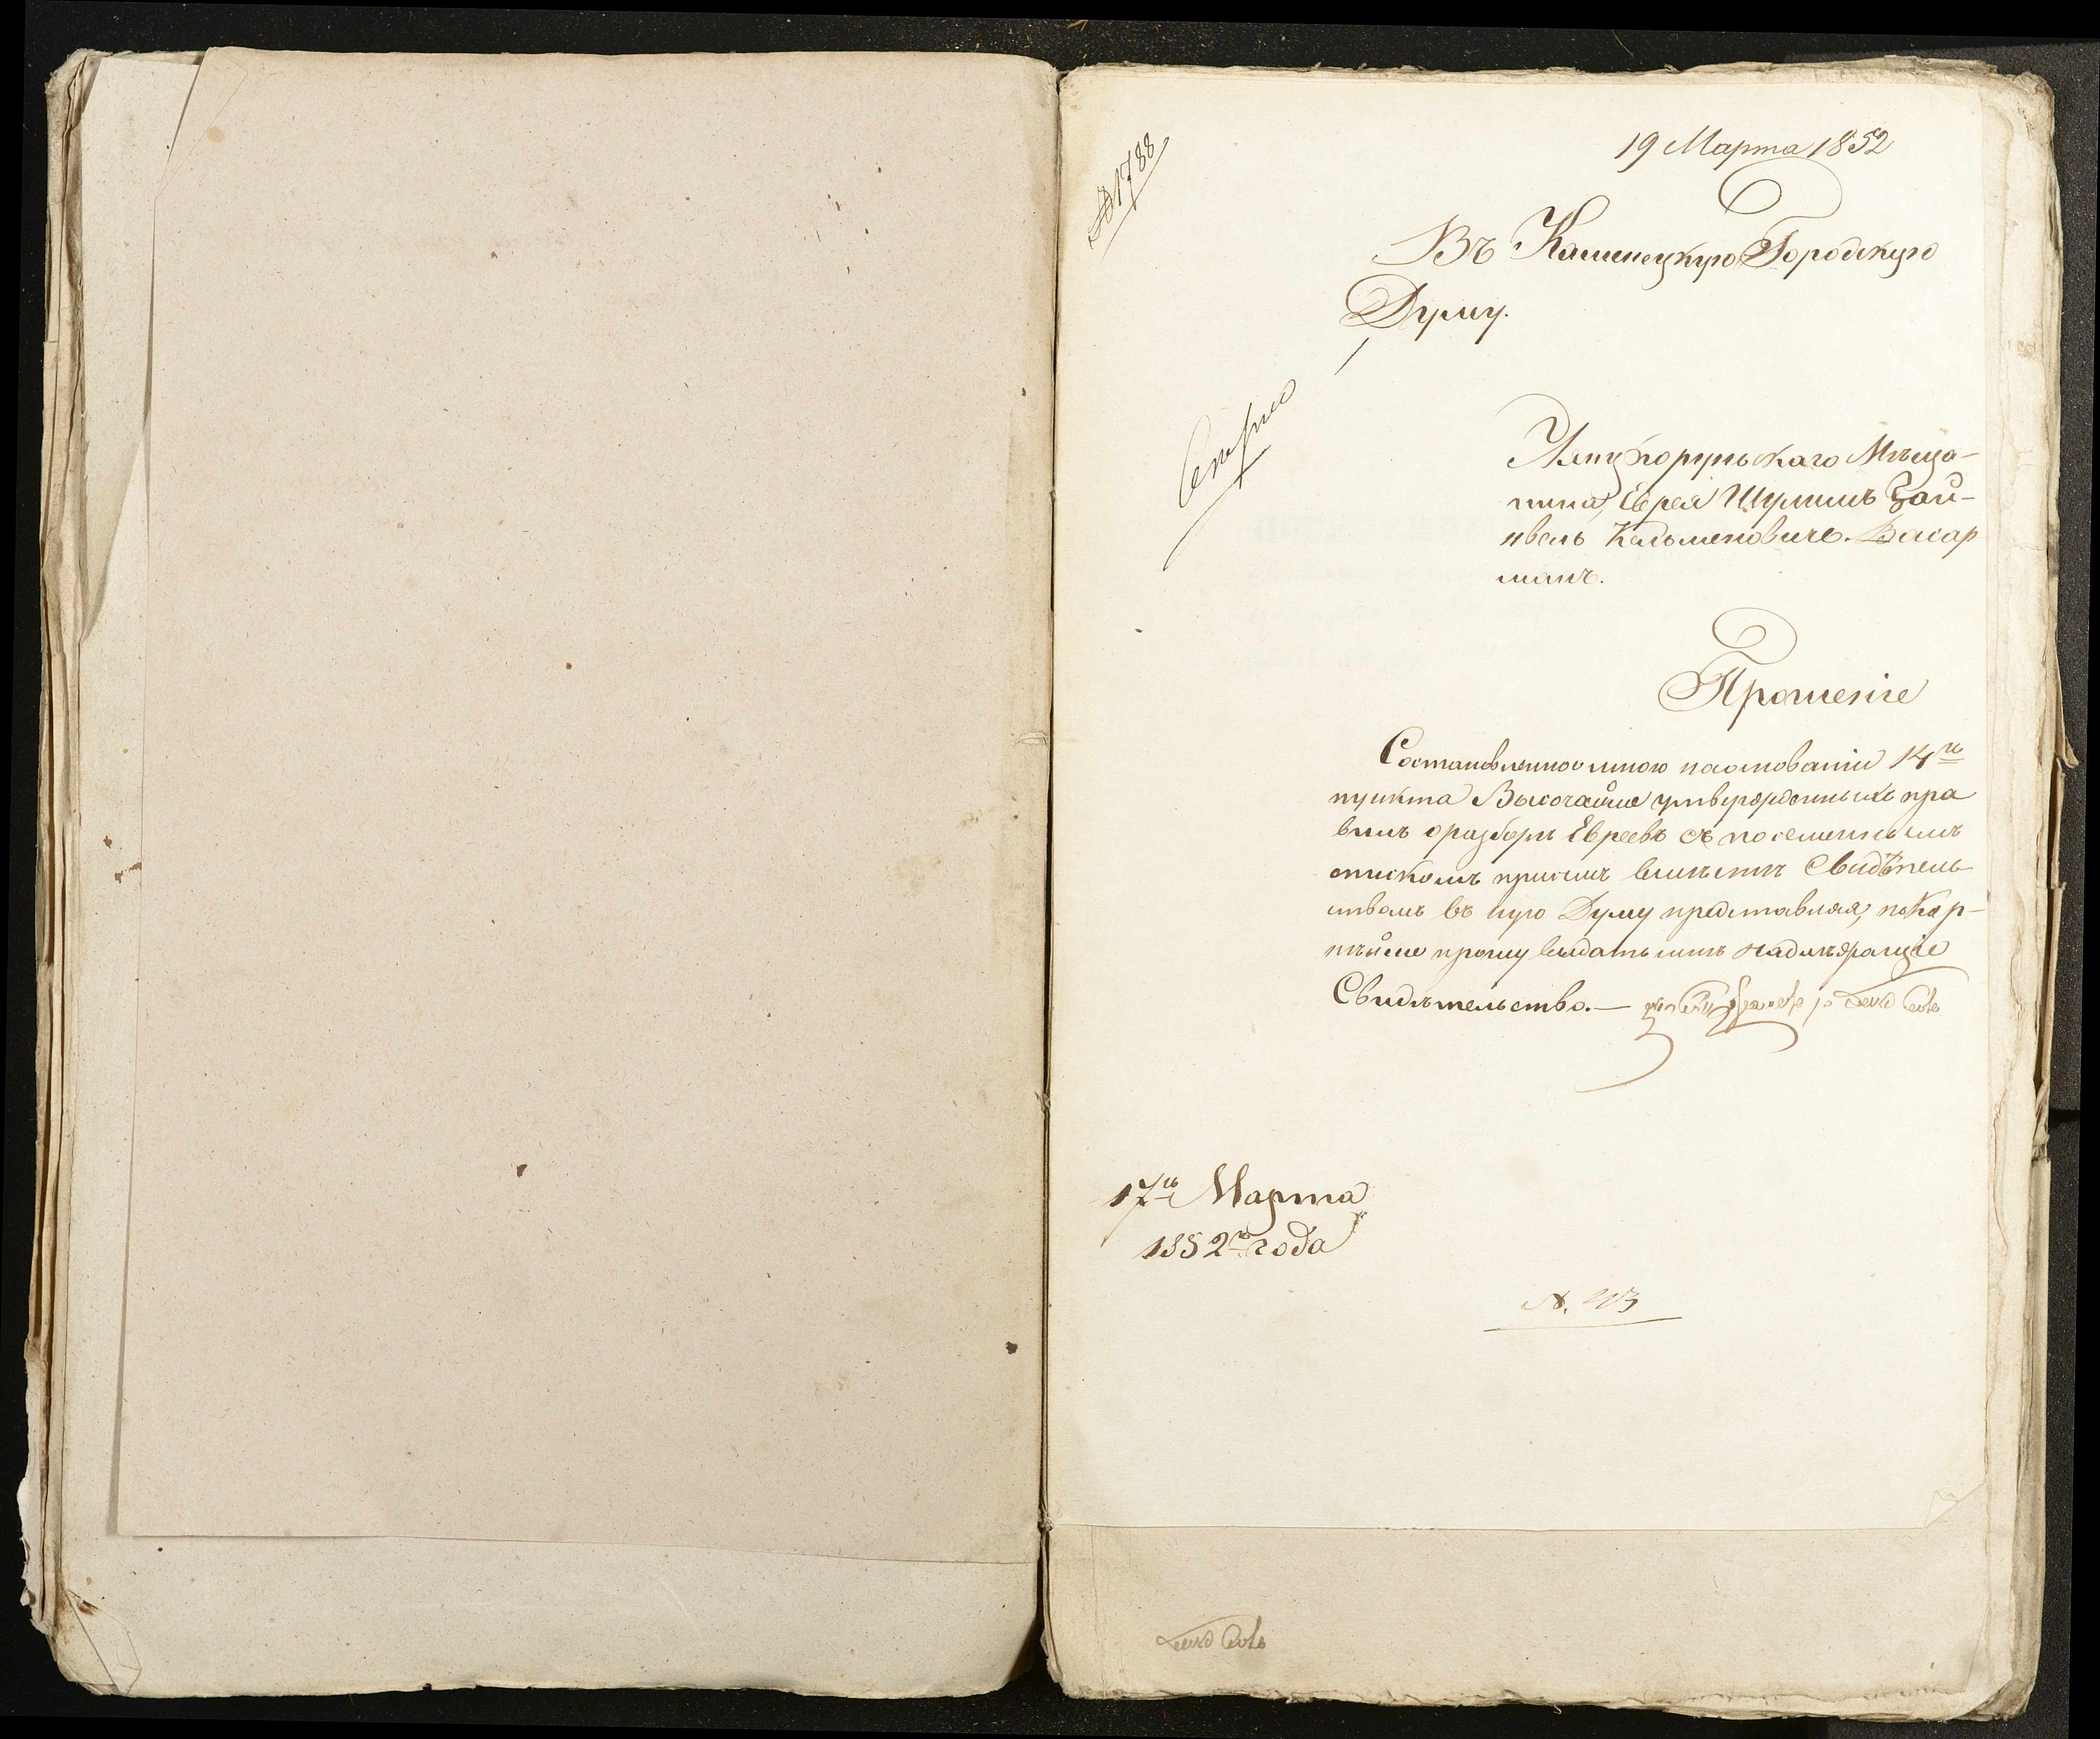 № 1788
19 Марта 1852
Въ Каменецкую Городскую
Думу.
Лянцкорунскаго Мѣща-
нина, Еврея Шулимъ Зай-
нвель Кельменовиче. Васар
манъ.
Прошеніе
Составленное мною наосновании 14го
пункта Высочайше утвержденныхъ пра
вилъ оразборѣ Евреевъ съ посемейнымъ
спискомъ присемъ вмѣстѣ Свидѣтель
ствомъ въ сию Думу представляя, покор-
нѣйше прошу выдать мнѣ надлѣжащіе
Свидѣтельство.—
17го Марта
1852го года
№. 413